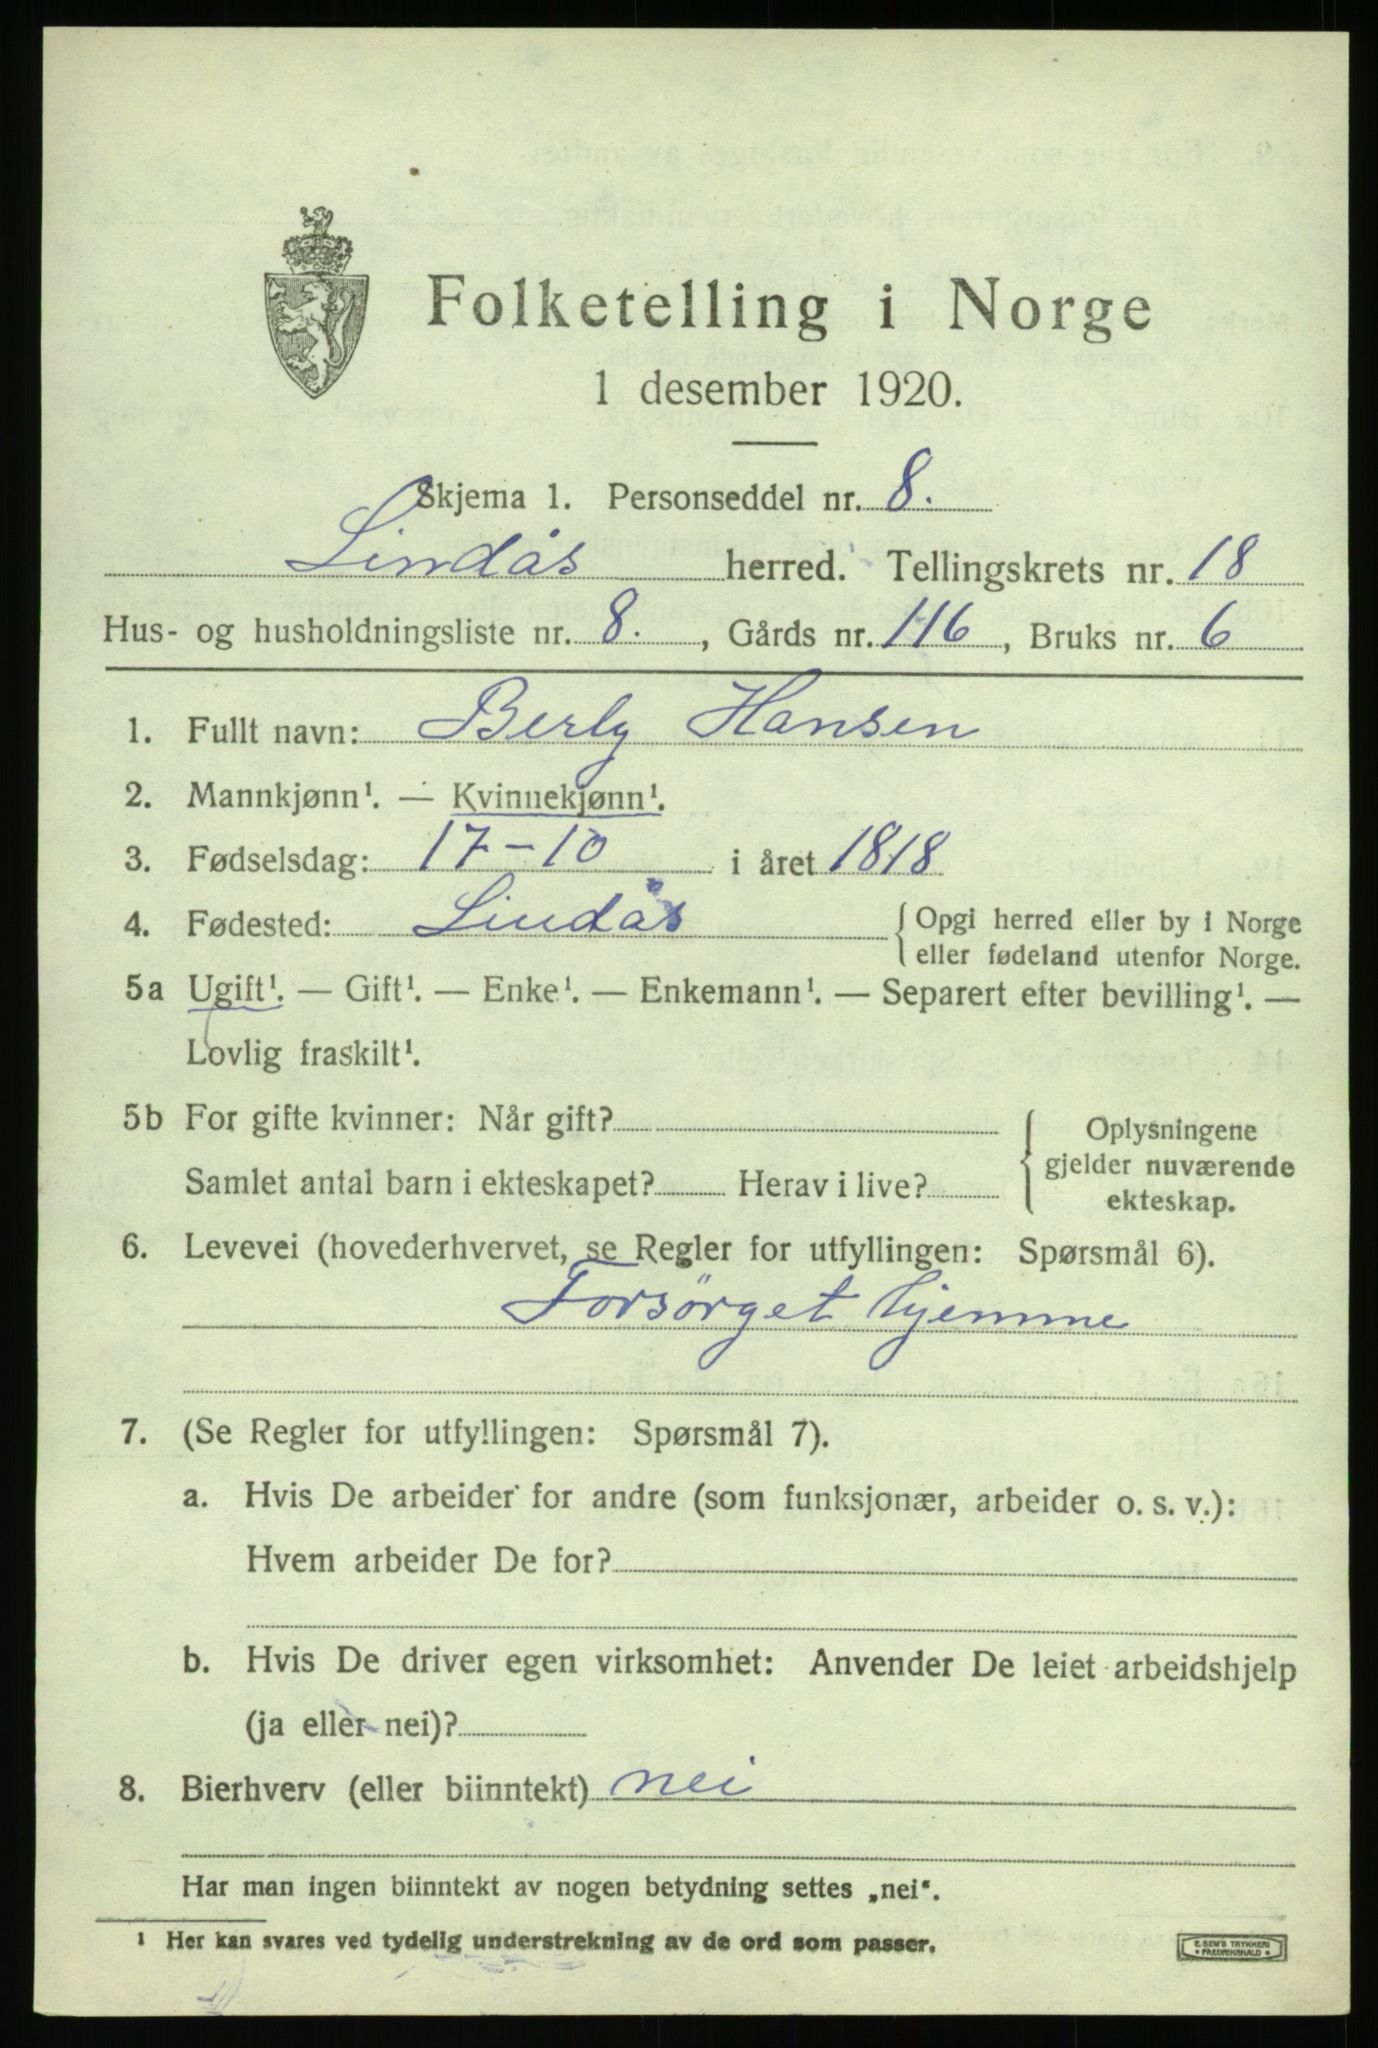 Folketelling i Norge
1 desember 1920.
Skjema 1. Personseddel nr. 8.
Lindås herred. Tellingskrets nr. 18
Hus- og husholdningsliste nr. 8., Gårds nr. 116, Bruks nr. 6
1. Fullt navn: Berly Hansen
2. Mannkjønn¹. — Kvinnekjønn¹.
3. Fødselsdag: 17-10 i året 1818
4. Fødested: Lindås { Opgi herred eller by i Norge
eller fødeland utenfor Norge.
5a Ugift¹. — Gift¹. — Enke¹. — Enkemann¹. — Separert efter bevilling¹. —
Lovlig fraskilt¹.
5b For gifte kvinner: Når gift?
Samlet antal barn i ekteskapet? Herav i live?
{ Oplysningene
gjelder nuværende
ekteskap.
6. Levevei (hovederhvervet, se Regler for utfyllingen: Spørsmål 6).
Forsörget hjemme
7. (Se Regler for utfyllingen: Spørsmål 7).
a. Hvis De arbeider for andre (som funksjonær, arbeider o. s. v.):
Hvem arbeider De for?
b. Hvis De driver egen virksomhet: Anvender De leiet arbeidshjelp
(ja eller nei)?
8. Bierhverv (eller biinntekt) nei
Har man ingen biinntekt av nogen betydning settes „nei“.
¹ Her kan svares ved tydelig understrekning av de ord som passer.
E. SEM'S TRYKKERI
• FREDRIKSHALD •